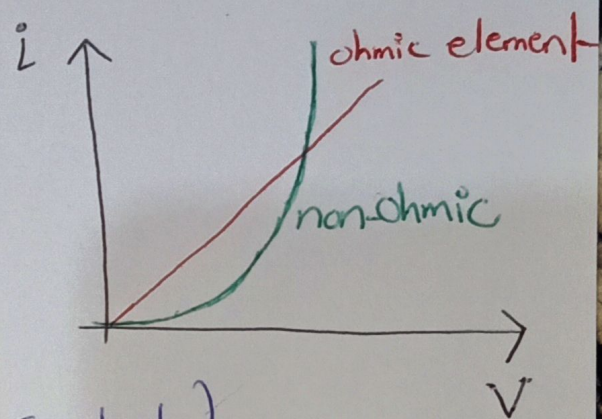 i
ohmic element
non-ohmic
V